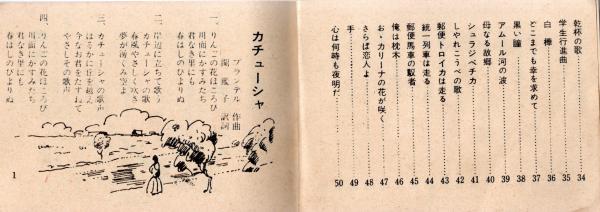 乾杯の歌 34
学生行進曲 35
白樺 36
どこまでも幸を求めて 37
黒い瞳 38
アムール河の波 39
母なる故郷 40
シュラジベチカ 41
しやれこうべの歌 42
郵便トロイカは走る 43
統一列車は走る 44
郵便馬車の馭者 45
俺は枕木 46
お、カリーナの花が咲く 47
さらば恋人よ 48
手 49
心は何時も夜明だ 50
カチューシャ
ブランテル 作曲
関 鑑子 訳詞
一、りんごの花ほころび
川面にかすみたち
君なき里にも
春はしのびよりぬ
二、岸辺に立ちて歌う
カチューシャの歌
春風やさしく吹き
夢が湧くみ空よ
三、カチューシャの歌声
はるかに丘を越え
今なお君をたずねて
やさしその歌声
四、りんごの花ほころび
川面にかすみたち
君なき里にも
春はしのびよりぬ
1